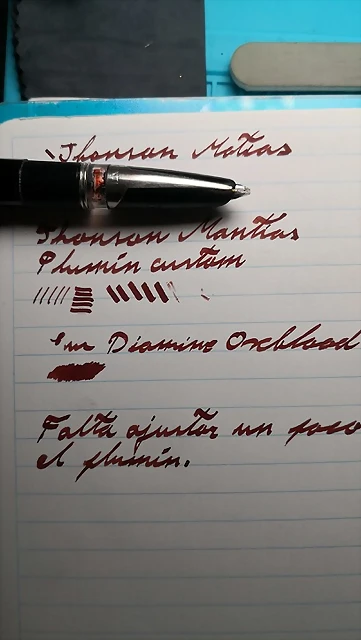 Jhonsan Matias
Jhonsan Mantias
Plumin custom
Diamine Oxblood
Falta ajustar un poco
el plumin.